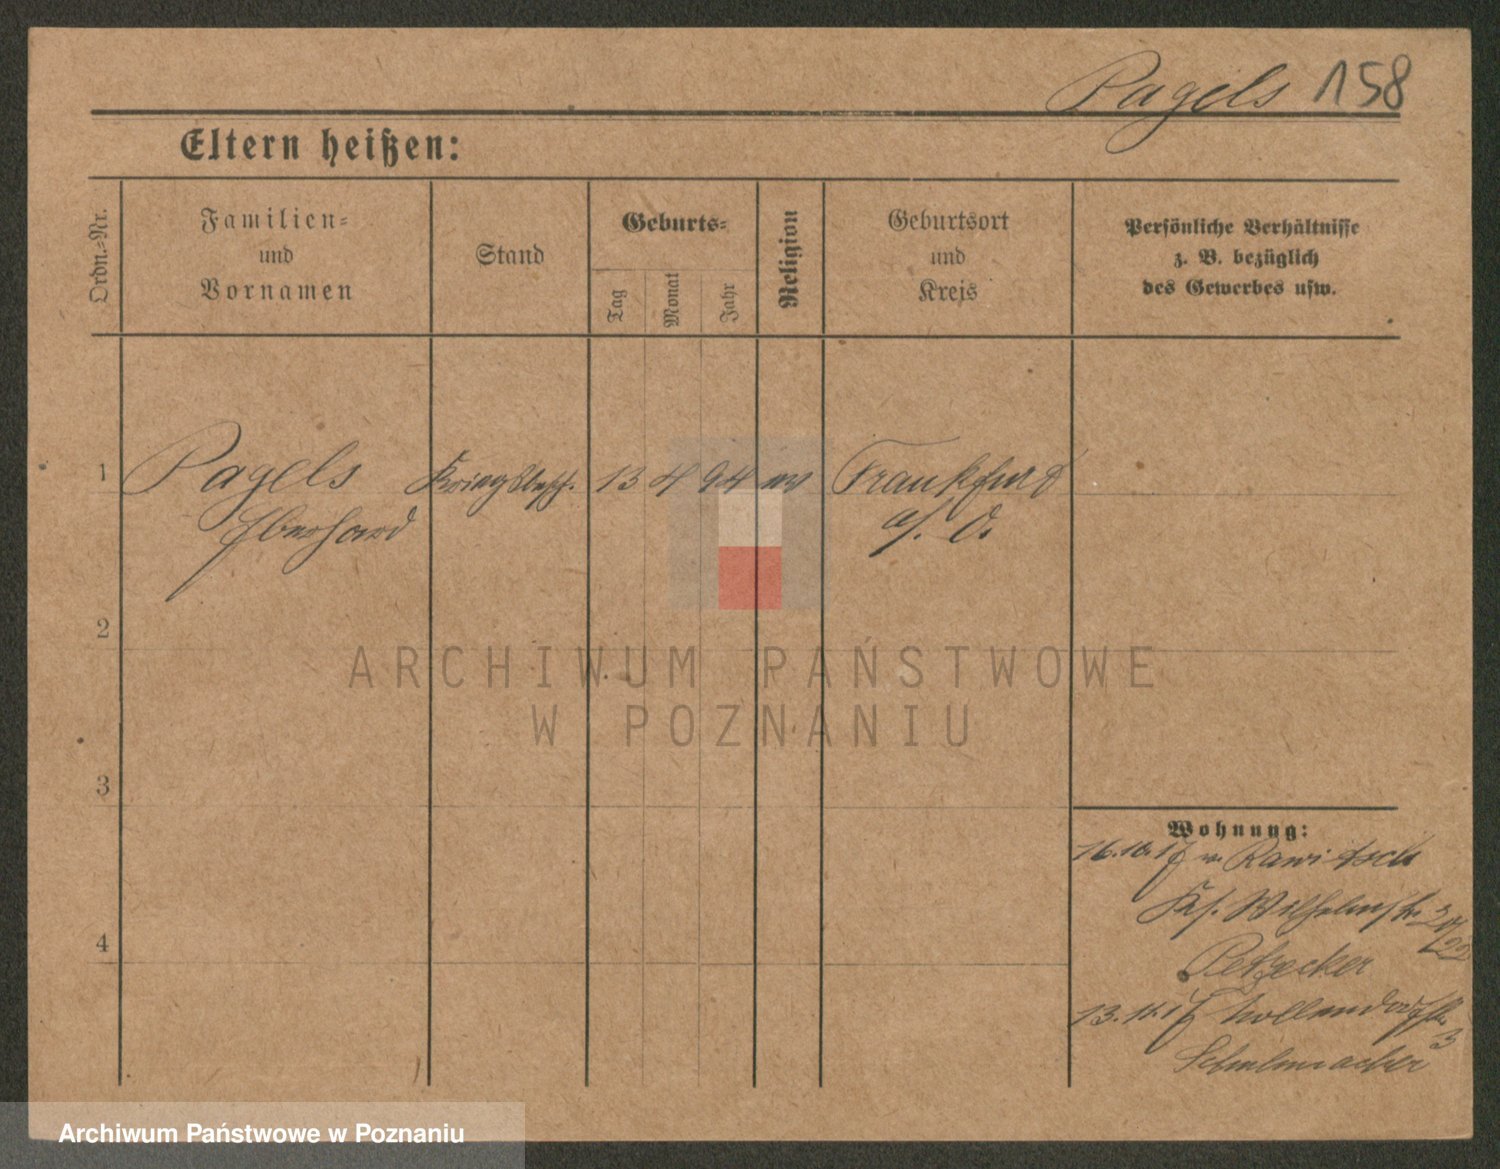 Pagels 158
Eltern heißen:
Ordn.=Nr.
Familien=
und
Vornamen
Stand
Geburts=
Tag
Monat
Jahr
Religion
Geburtsort
und
Kreis
Persönliche Verhältnisse
z. B. bezüglich
des Gewerbes usw.
1 Pagels Kriegsbesch. 13 4 94 ev Frankfurt
Eberhard a/. O.
2
3
4
Wohnung:
16.10.17 v. Rawitsch
Ks. Wilhelmstr
13.11.17 Hollendorfstr.
3
Schuhmacher
ARCHIWUM PAŃSTWOWE
W POZNANIU
Archiwum Państwowe w Poznaniu